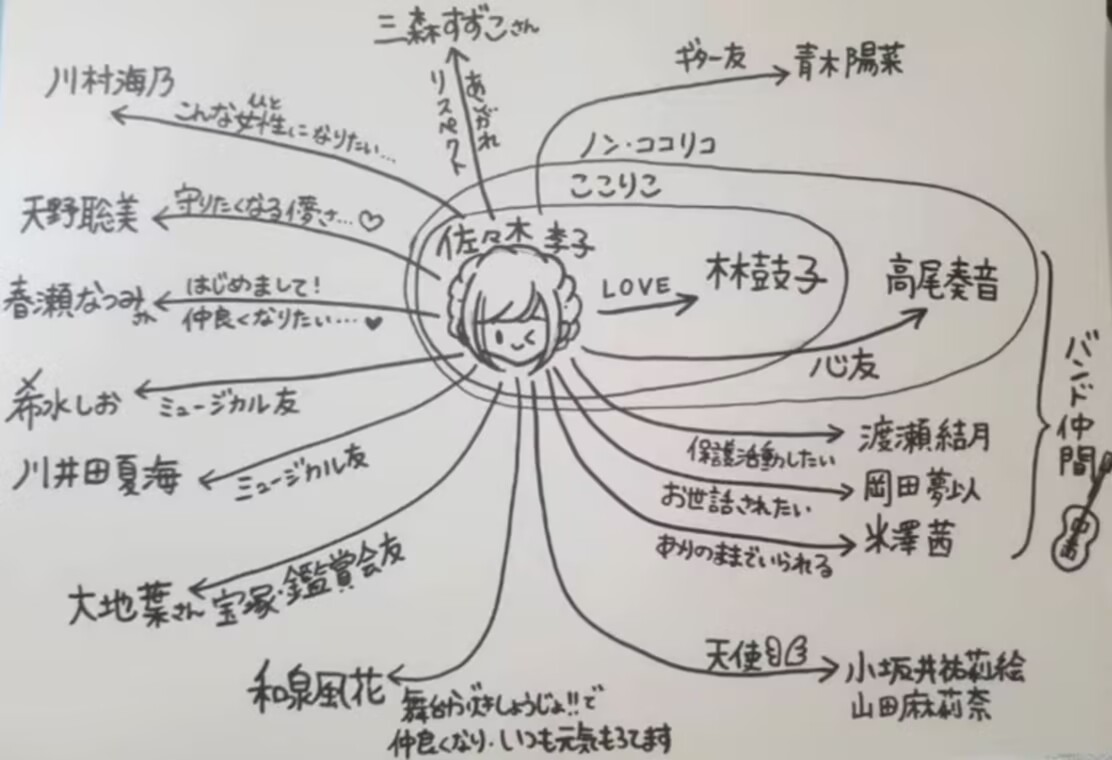 三森すずこさん
あこがれ
リスペクト
ギター友
青木陽菜
川村海乃
ひと
こんな女性になりたい…
ノン・ココリコ
ここりこ
天野聡美
守りたくなる儚さ…♡
佐々木李子
LOVE
林鼓子
高尾奏音
心友
春瀬なつみ
はじめまして!
仲良くなりたい…♥
希水しお
ミュージカル友
川井田夏海
ミュージカル友
渡瀬結月
保護活動したい
岡田夢以
お世話されたい
米澤茜
ありのままでいられる
バンド仲間
大地葉さん
宝塚・鑑賞会友
和泉風花
舞台からびきしょうじょ!!で
仲良くなり、いつも元気もらてます
天使
小坂井祐莉絵
山田麻莉奈